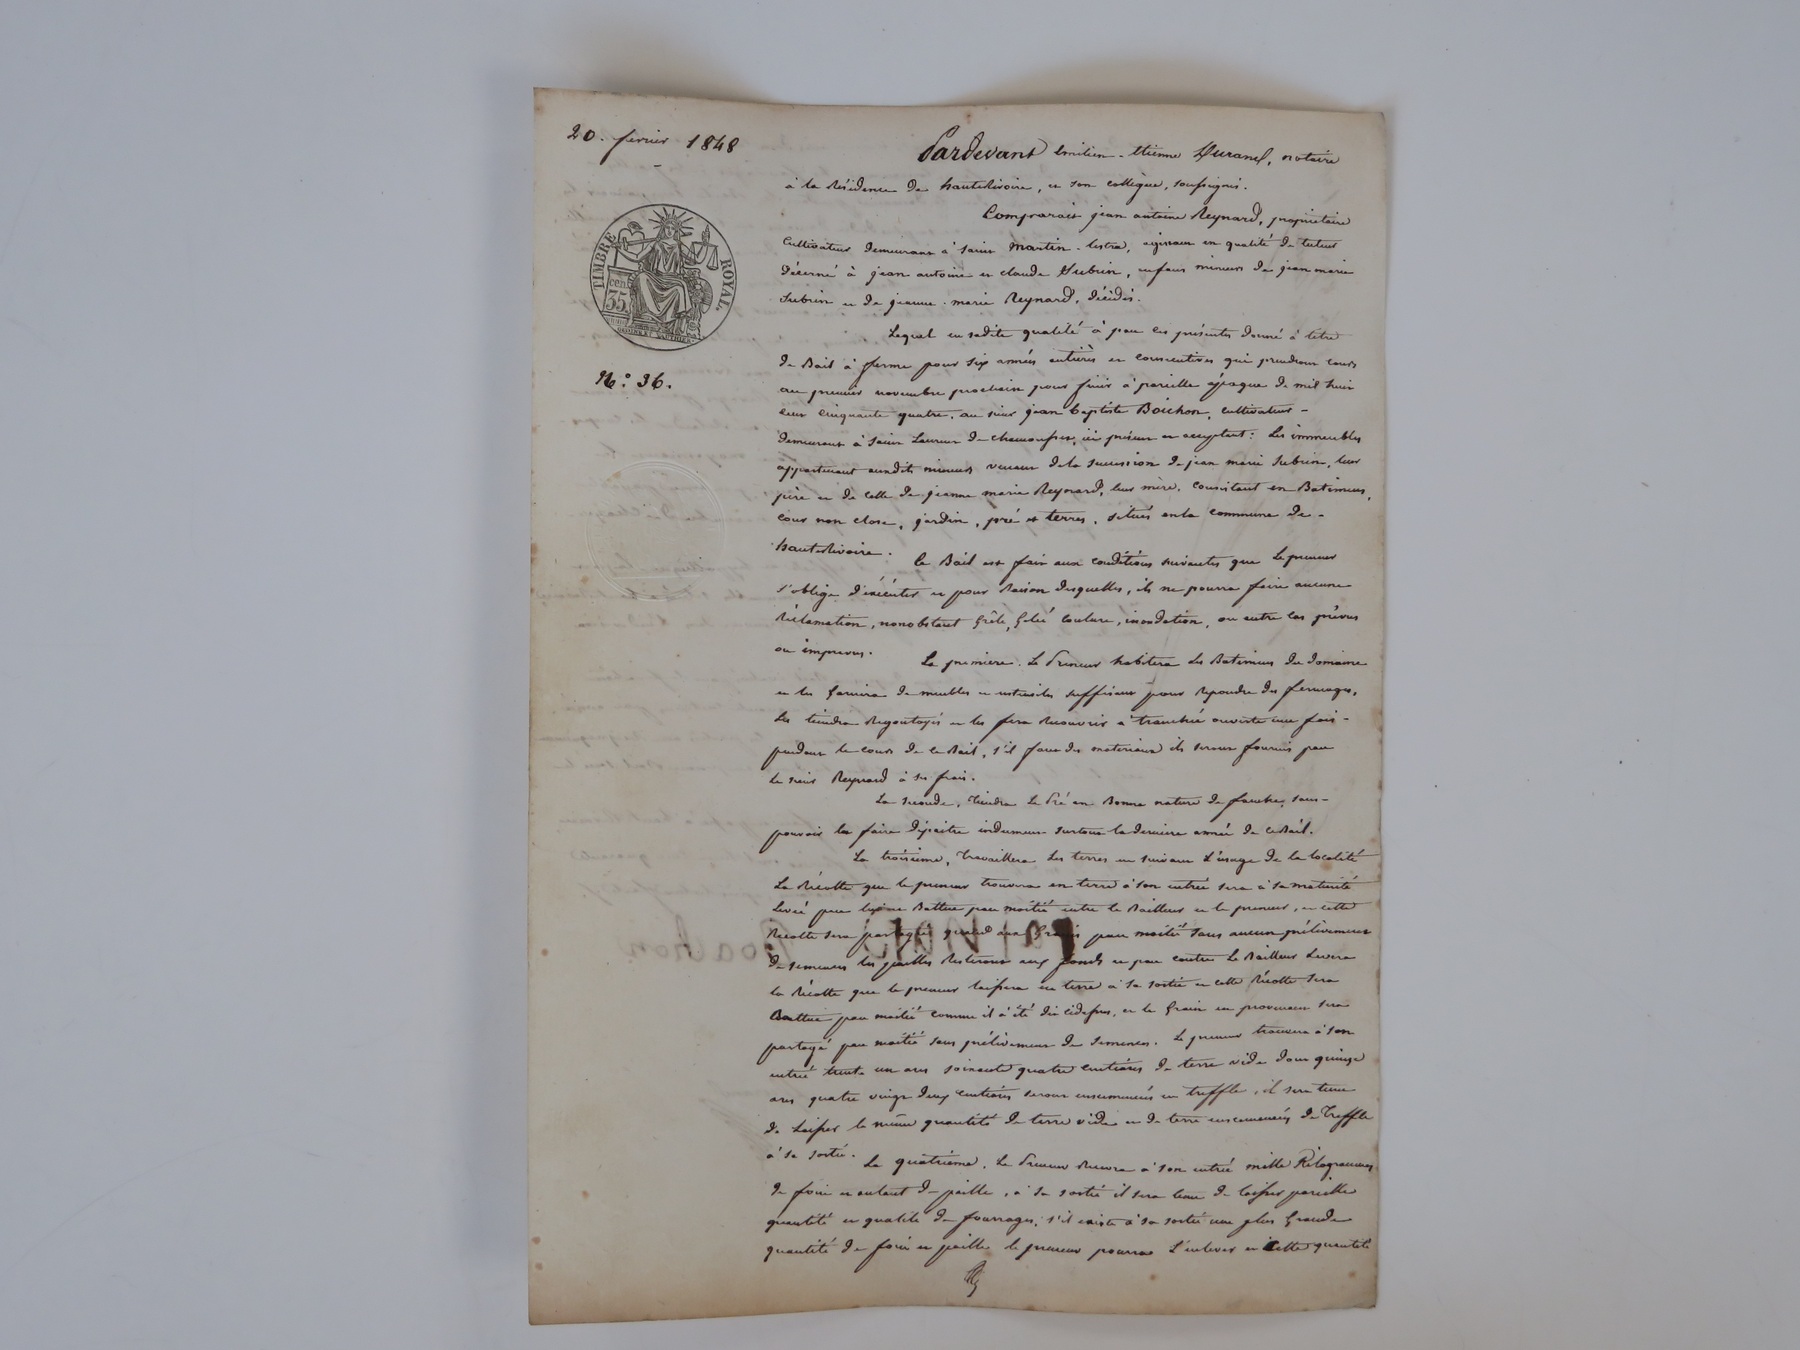 20. février 1848
Pardevant Emilien-Etienne Durand, notaire
à la Résidence de hauterivoire, et son collègue, soussignés.
Comparait jean antoine Reynard, propriétaire
TIMBRE ROYAL.
cent. 35
Cultivateur demeurant à saint Martin-lestra, agissant en qualité de tuteur
décerné à jean antoine et claude Subrin, enfans mineurs de jean marie
Subrin et de jeanne-marie Reynard, décédés.
Lequel en sadite qualité à par ces présentes donné à titre
de Bail à ferme pour six années entières et consécutives qui prendront cours
N.º 36.
au premier novembre prochain pour finir à pareille époque de mil huit
cent cinquante quatre, au sieur jean baptiste Boichon, cultivateur-
demeurant à saint Laurent de chamousset, ici présent et acceptant: Les immeubles
appartenant auxdits mineurs venant de la succession de jean marie Subrin, leur
père et de celle de jeanne marie Reynard, leur mère, consistant en Batimens,
cour non close, jardin, pré et terres, situés en la commune de-
hauterivoire.
Ce Bail est fait aux conditions suivantes que Le preneur
s'oblige d'éxécuter et pour Raison desquelles, ils ne pourra faire aucune
Réclamation, nonobstant Grêle, Gelée Coulure, inondation, ou autre cas prévus
ou imprévus.
La première. Le Preneur habitera Les Batimens du domaine
et les Garnira de meubles et ustensiles suffisans pour Répondre des fermages,
Les tiendra Regoutoyés et les fera Recouvrir à tranchée ouverte une fois-
pendant le cours de ce Bail, s'il faut des matériaux ils seront fournis par
le sieur Reynard à ses frais.
La seconde, Tiendra Le Pré en Bonne nature de fauche, sans-
pouvoir les faire dépaitre indument surtout la dernière année de ce Bail.
La troisième, Travaillera Les terres en suivant L'usage de la localité
La Récolte que le preneur trouvera en terre à son entrée sera à sa maturité
Levée par Battue par moitié entre le Bailleur et le preneur, et cette
Récolte sera partagée quand aux Grains par moitié sans aucun prélèvement
de semences les pailles Resteront aux fonds et par contre Le Bailleur Levera
la Récolte que le preneur laissera en terre à sa sortie et cette Récolte sera
Battue par moitié comme il à été dit cidessus, et le Grain en provenant sera
partagé par moitié sans prélèvement de semences. Le preneur trouvera à son
entrée trente un ares soixante quatre centiares de terre vide dont quinze
ares quatre vingt deux centiares seront ensemencés en treffle, il sera tenu
de Laisser la même quantité de terre vide et de terre ensemencés de Treffle
à sa sortie.
La quatrième. Le Preneur Recevra à son entrée mille Kilogrammes
de foin et autant de paille, à sa sortie il sera tenu de laisser pareille
quantité et qualité de fourrages, s'il existe à sa sortie une plus Grande
quantité de foin et paille le preneur pourra L'enlever et cette quantité